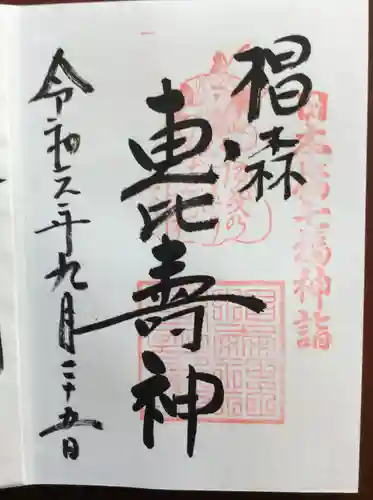 日本橋七福神詣
椙森
恵比壽神
令和元年九月二十五日